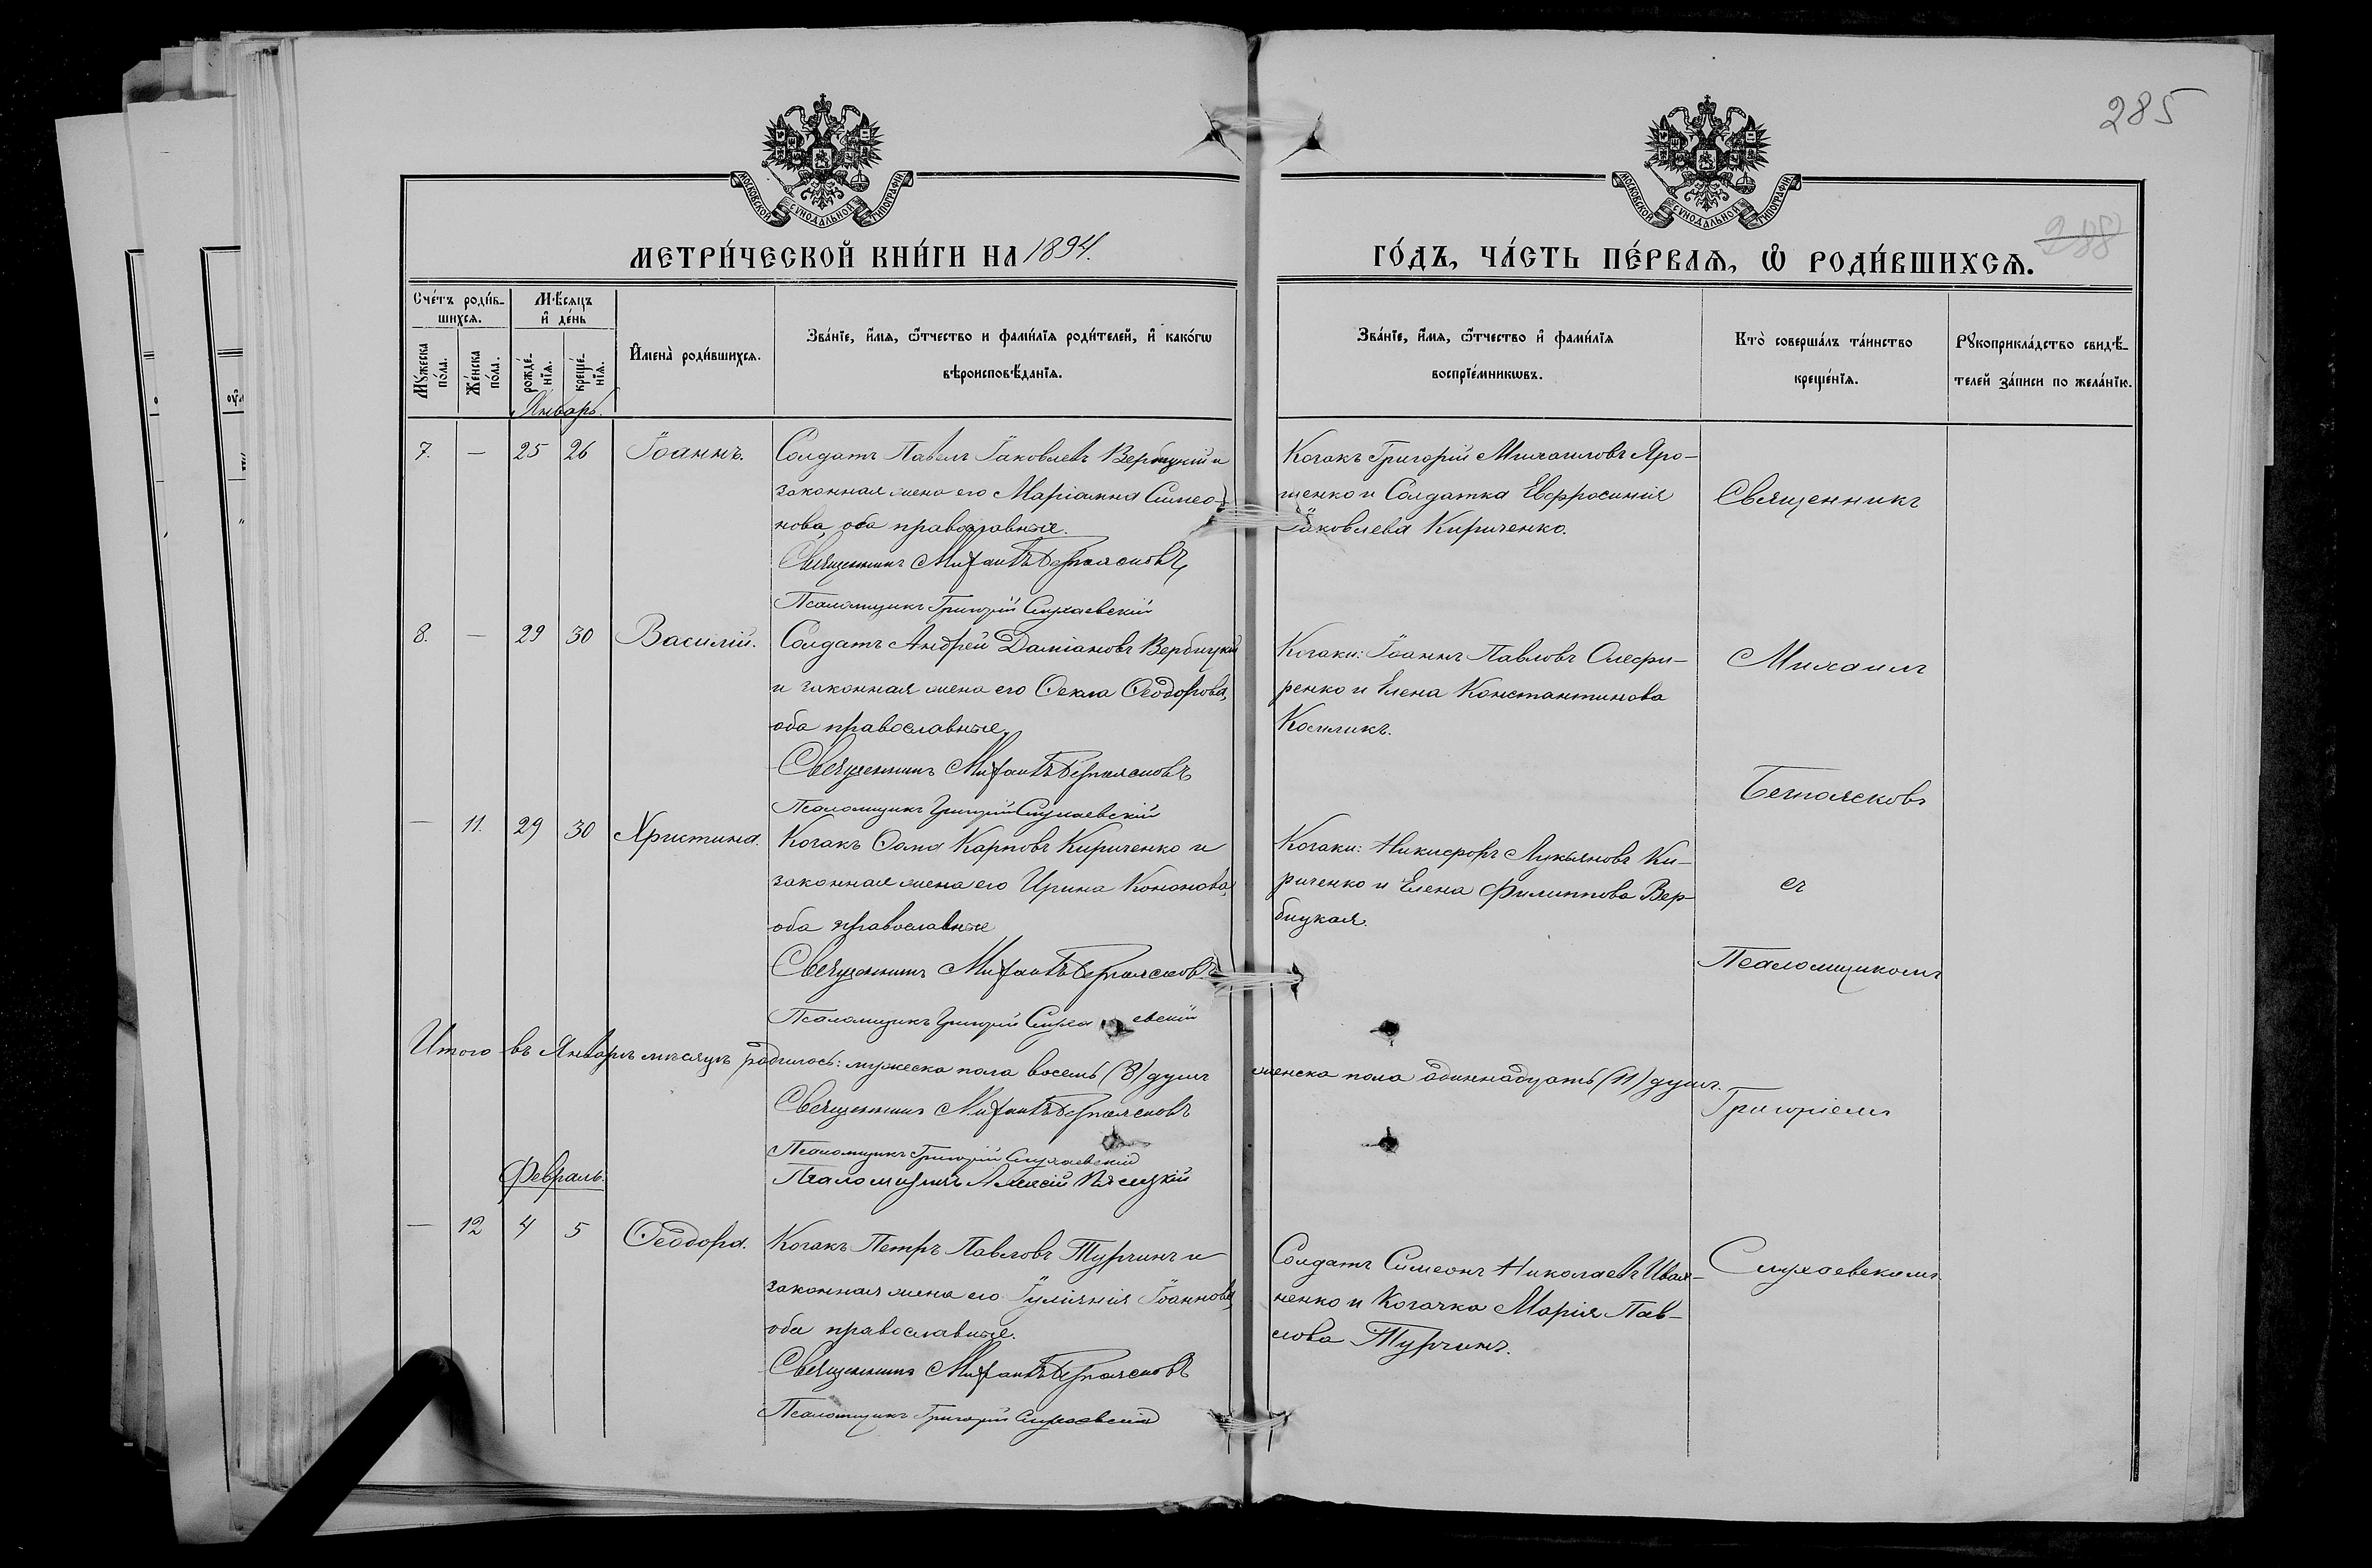 285
288
МОСКОВСКОЙ СѴНОДАЛЬНОЙ ТИПОГРАФІИ
МОСКОВСКОЙ СѴНОДАЛЬНОЙ ТИПОГРАФІИ
МЕТРИ́ЧЕСКОЙ КНИ́ГИ НА 1894.
ГО́ДЪ, ЧА́СТЬ ПЕ́РВАЯ, Ѿ РОДИ́ВШИХСЯ.
Сче́тъ роди́в-
шихся.
Мѣ́сяцъ
и҆ де́нь
Му́жеска
по́ла.
Же́нска
по́ла.
рожде́-
нїя.
креще́-
нїя.
И҆мена̀ роди́вшихся.
Зва́нїе, и҆́мя, ѻ҆́тчество и фами́лїя роди́телей, и҆ како́гѡ
вѣроисповѣ́данїя.
Зва́нїе, и҆́мя, ѻ҆́тчество и҆ фами́лїя
воспрїе́мникѡвъ.
Кто̀ соверша́лъ та́инство
креще́нїя.
Рꙋкоприкла́дство свидѣ́-
телей за́писи по жела́нїю.
Январь.
7. — 25 26 Іоаннъ.
Солдатъ Павелъ Іаковлевъ Вербицкій и
законная жена его Маріанна Симео-
нова, оба православные.
Священникъ Михаилъ Безпоясковъ
Псаломщикъ Григорій Слухаевскій
Козакъ Григорій Михаиловъ Яро-
шенко и Солдатка Евфросинія
Іаковлева Кириченко.
8. — 29 30 Василій.
Солдатъ Андрей Даміановъ Вербицкій
и законная жена его Ѳекла Ѳеодорова,
оба православные.
Священникъ Михаилъ Безпоясковъ
Псаломщикъ Григорій Слухаевскій
Козаки: Іоаннъ Павловъ Олефи-
ренко и Елена Константинова
— 11. 29 30 Христина.
Козакъ Ѳома Карповъ Кириченко и
законная жена его Ирина Кононова,
оба православные
Священникъ Михаилъ Безпоясковъ
Псаломщикъ Григорій Слухаевскій
Козаки: Никифоръ Лукьяновъ Ки-
риченко и Елена Филиппова Вер-
бицкая.
Итого въ Январѣ мѣсяцѣ родилось: мужеска пола восемь (8) душъ женска пола одиннадцать (11) душъ.
Священникъ Михаилъ Безпоясковъ
Псаломщикъ Григорій Слухаевскій
Псаломщикъ Алексій
Февраль.
— 12 4 5 Ѳеодора.
Козакъ Петръ Павловъ Турчинъ и
законная жена его Іуліанія Іоаннова,
оба православные.
Священникъ Михаилъ Безпоясковъ
Псаломщикъ Григорій Слухаевскій
Солдатъ Симеонъ Николаевъ Ивах-
ненко и Козачка Марія Пав-
лова Турчинъ.
Священникъ
Михаилъ
Безпоясковъ
съ
Псаломщикомъ
Григоріемъ
Слухаевскимъ